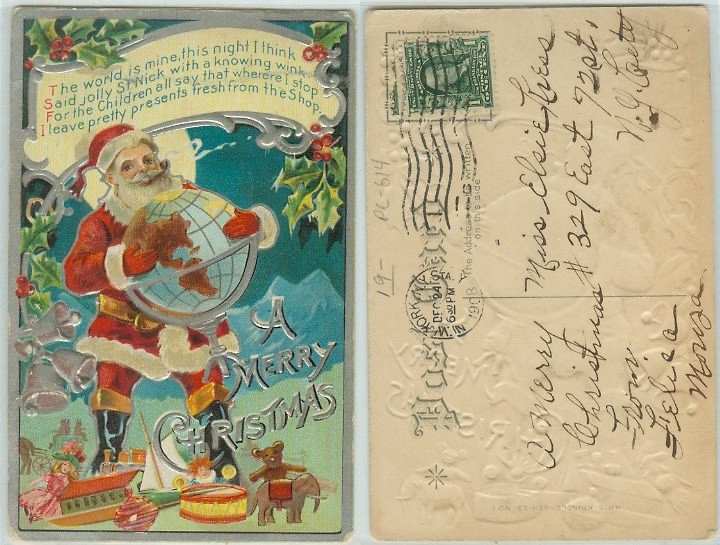 The world is mine, this night I think
Said jolly St Nick, with a knowing wink
For the Children all say, that where'er I stop
I leave pretty presents fresh from the Shop.
A
MERRY
CHRISTMAS
Miss Elsie Kress
# 329 East 72 st.
N.Y. City
A Merry
Christmas
From
Felica
PC-614
19-
DEC 24
6 30 PM
1908
The Address
written
on this side